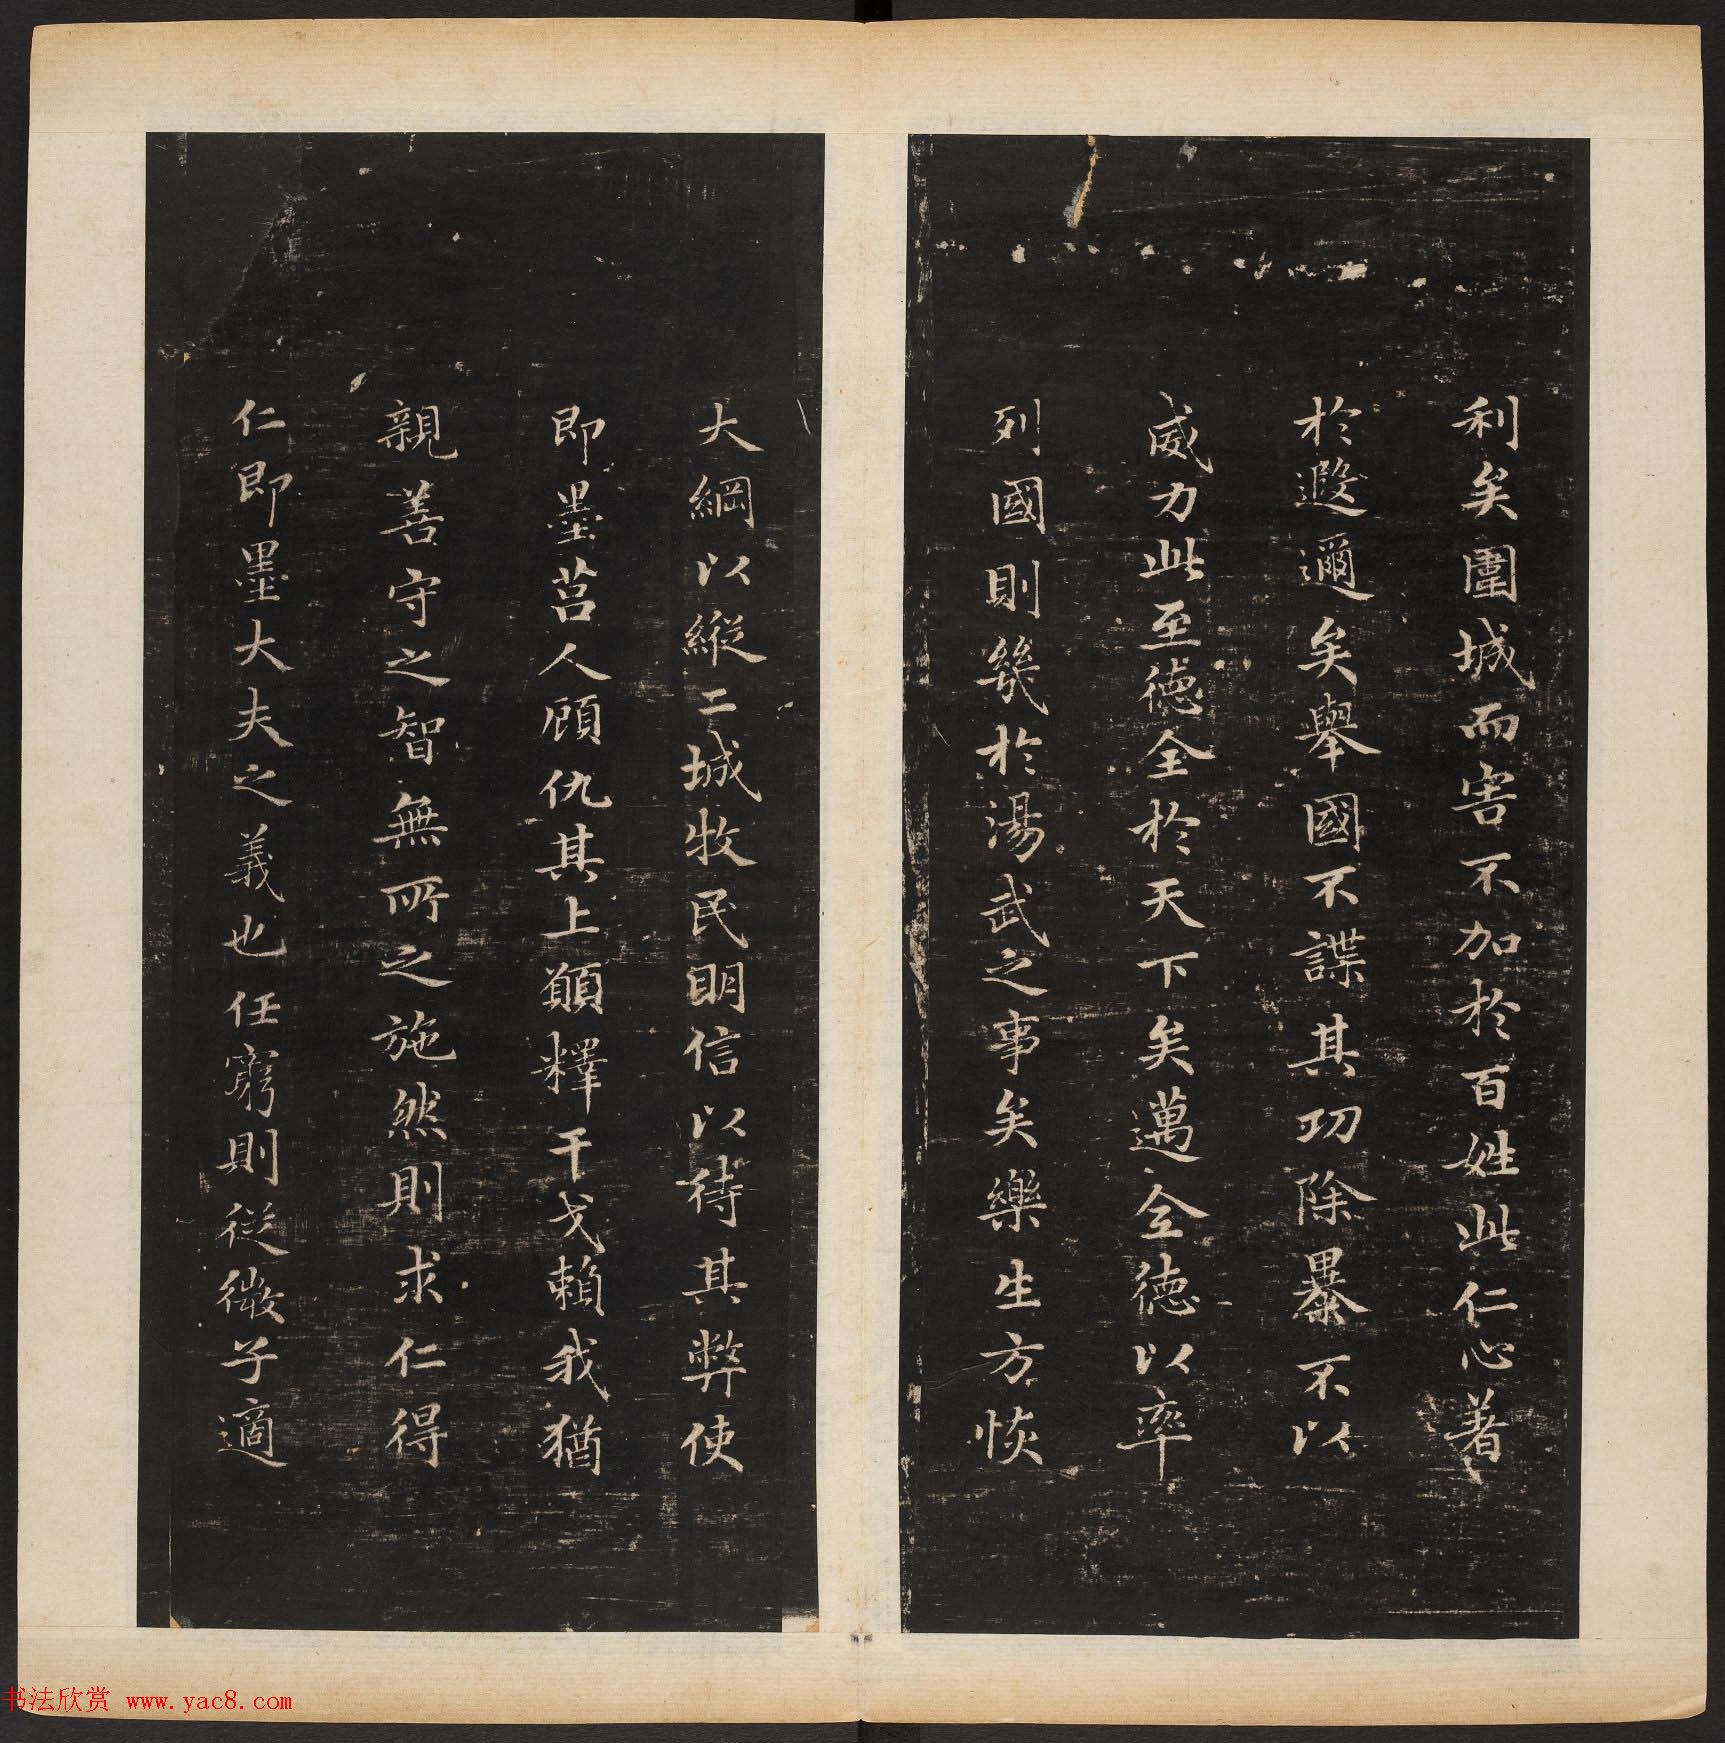 利矣圍城而害不加於百姓此仁心著
於遐邇矣舉國不謀其功除暴不以
威力此至德全於天下矣邁全德以率
列國則幾於湯武之事矣樂生方恢
大綱以縱二城牧民明信以待其弊使
即墨莒人顧仇其上願釋干戈賴我猶
親善守之智無所之施然則求仁得
仁即墨大夫之義也任窮則從微子適
书法欣赏 www.yac8.com